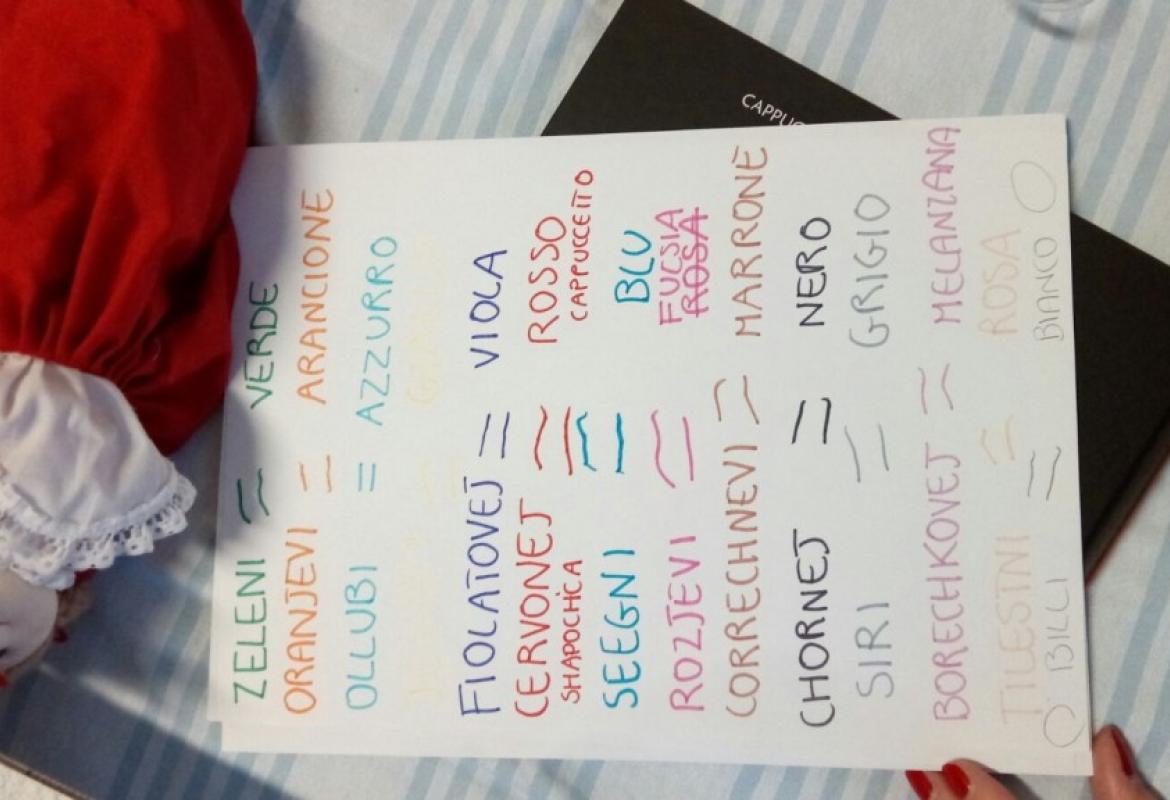 CAPPUC
ZELENI = VERDE
ORANJEVI = ARANCIONE
OLLUBI = AZZURRO
FIOLATOVEJ = VIOLA
CERVONEJ = ROSSO
SHAPOCHICA CAPPUCCETTO
SEEGNI = BLU
ROZJEVI = FUCSIA ROSA
CORRECHNEVI = MARRONE
CHORNEJ = NERO
SIRI = GRIGIO
BORECHKOVEJ = MELANZANA
TILESTNI = ROSA
BILLI = BIANCO